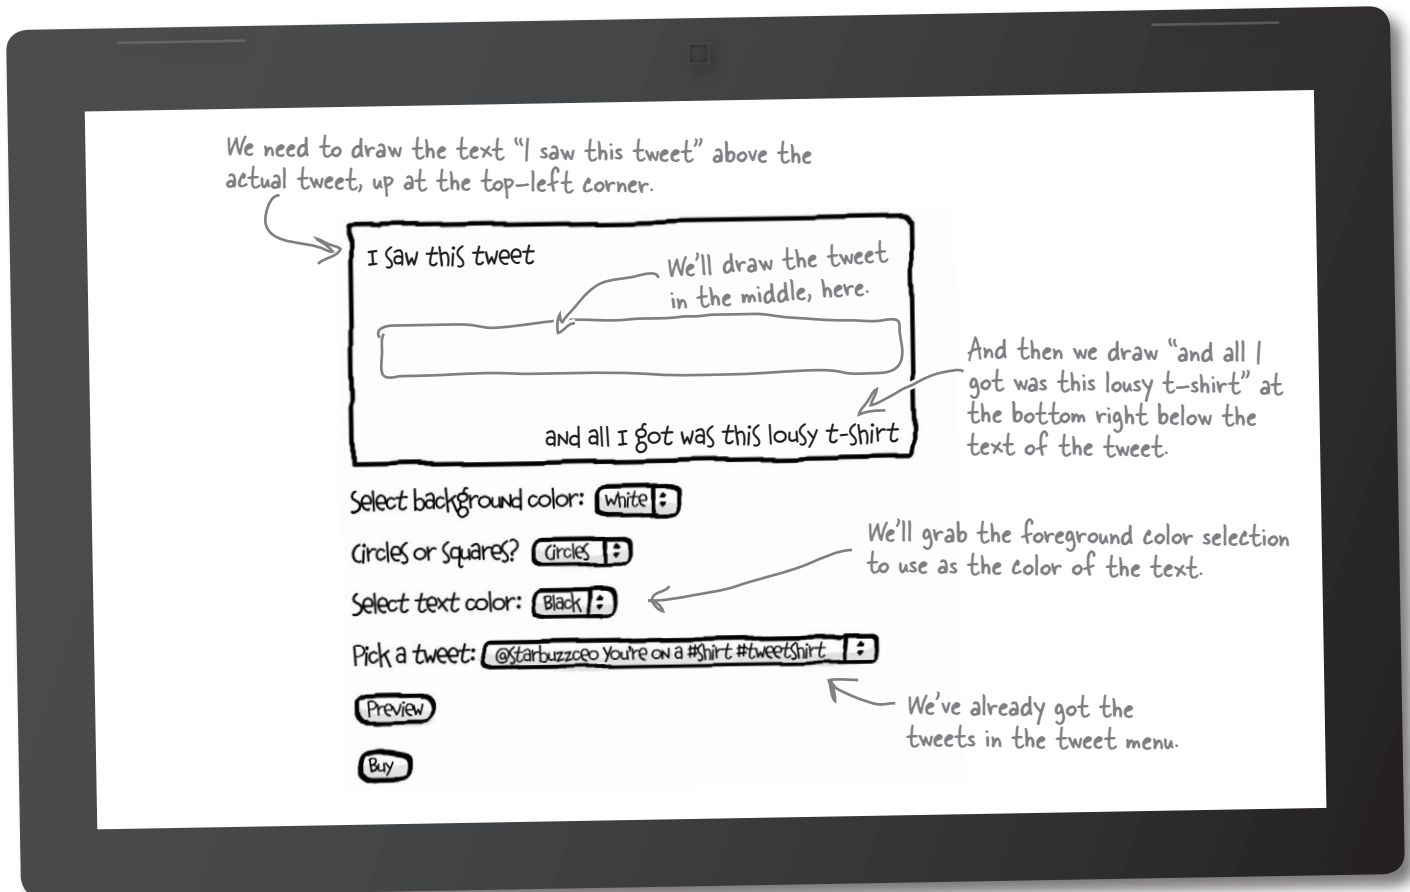 We need to draw the text “I saw this tweet” above the
actual tweet, up at the top-left corner.
I saw this tweet
We'll draw the tweet
in the middle, here.
And then we draw “and all I
got was this lousy t-shirt” at
the bottom right below the
text of the tweet.
and all I got was this lousy t-shirt
Select background color: white
Circles or squares? Circles
We'll grab the foreground color selection
to use as the color of the text.
Select text color: Black
Pick a tweet: @starbuzzceo You're on a #shirt #tweetshirt
Preview
We've already got the
tweets in the tweet menu.
Buy